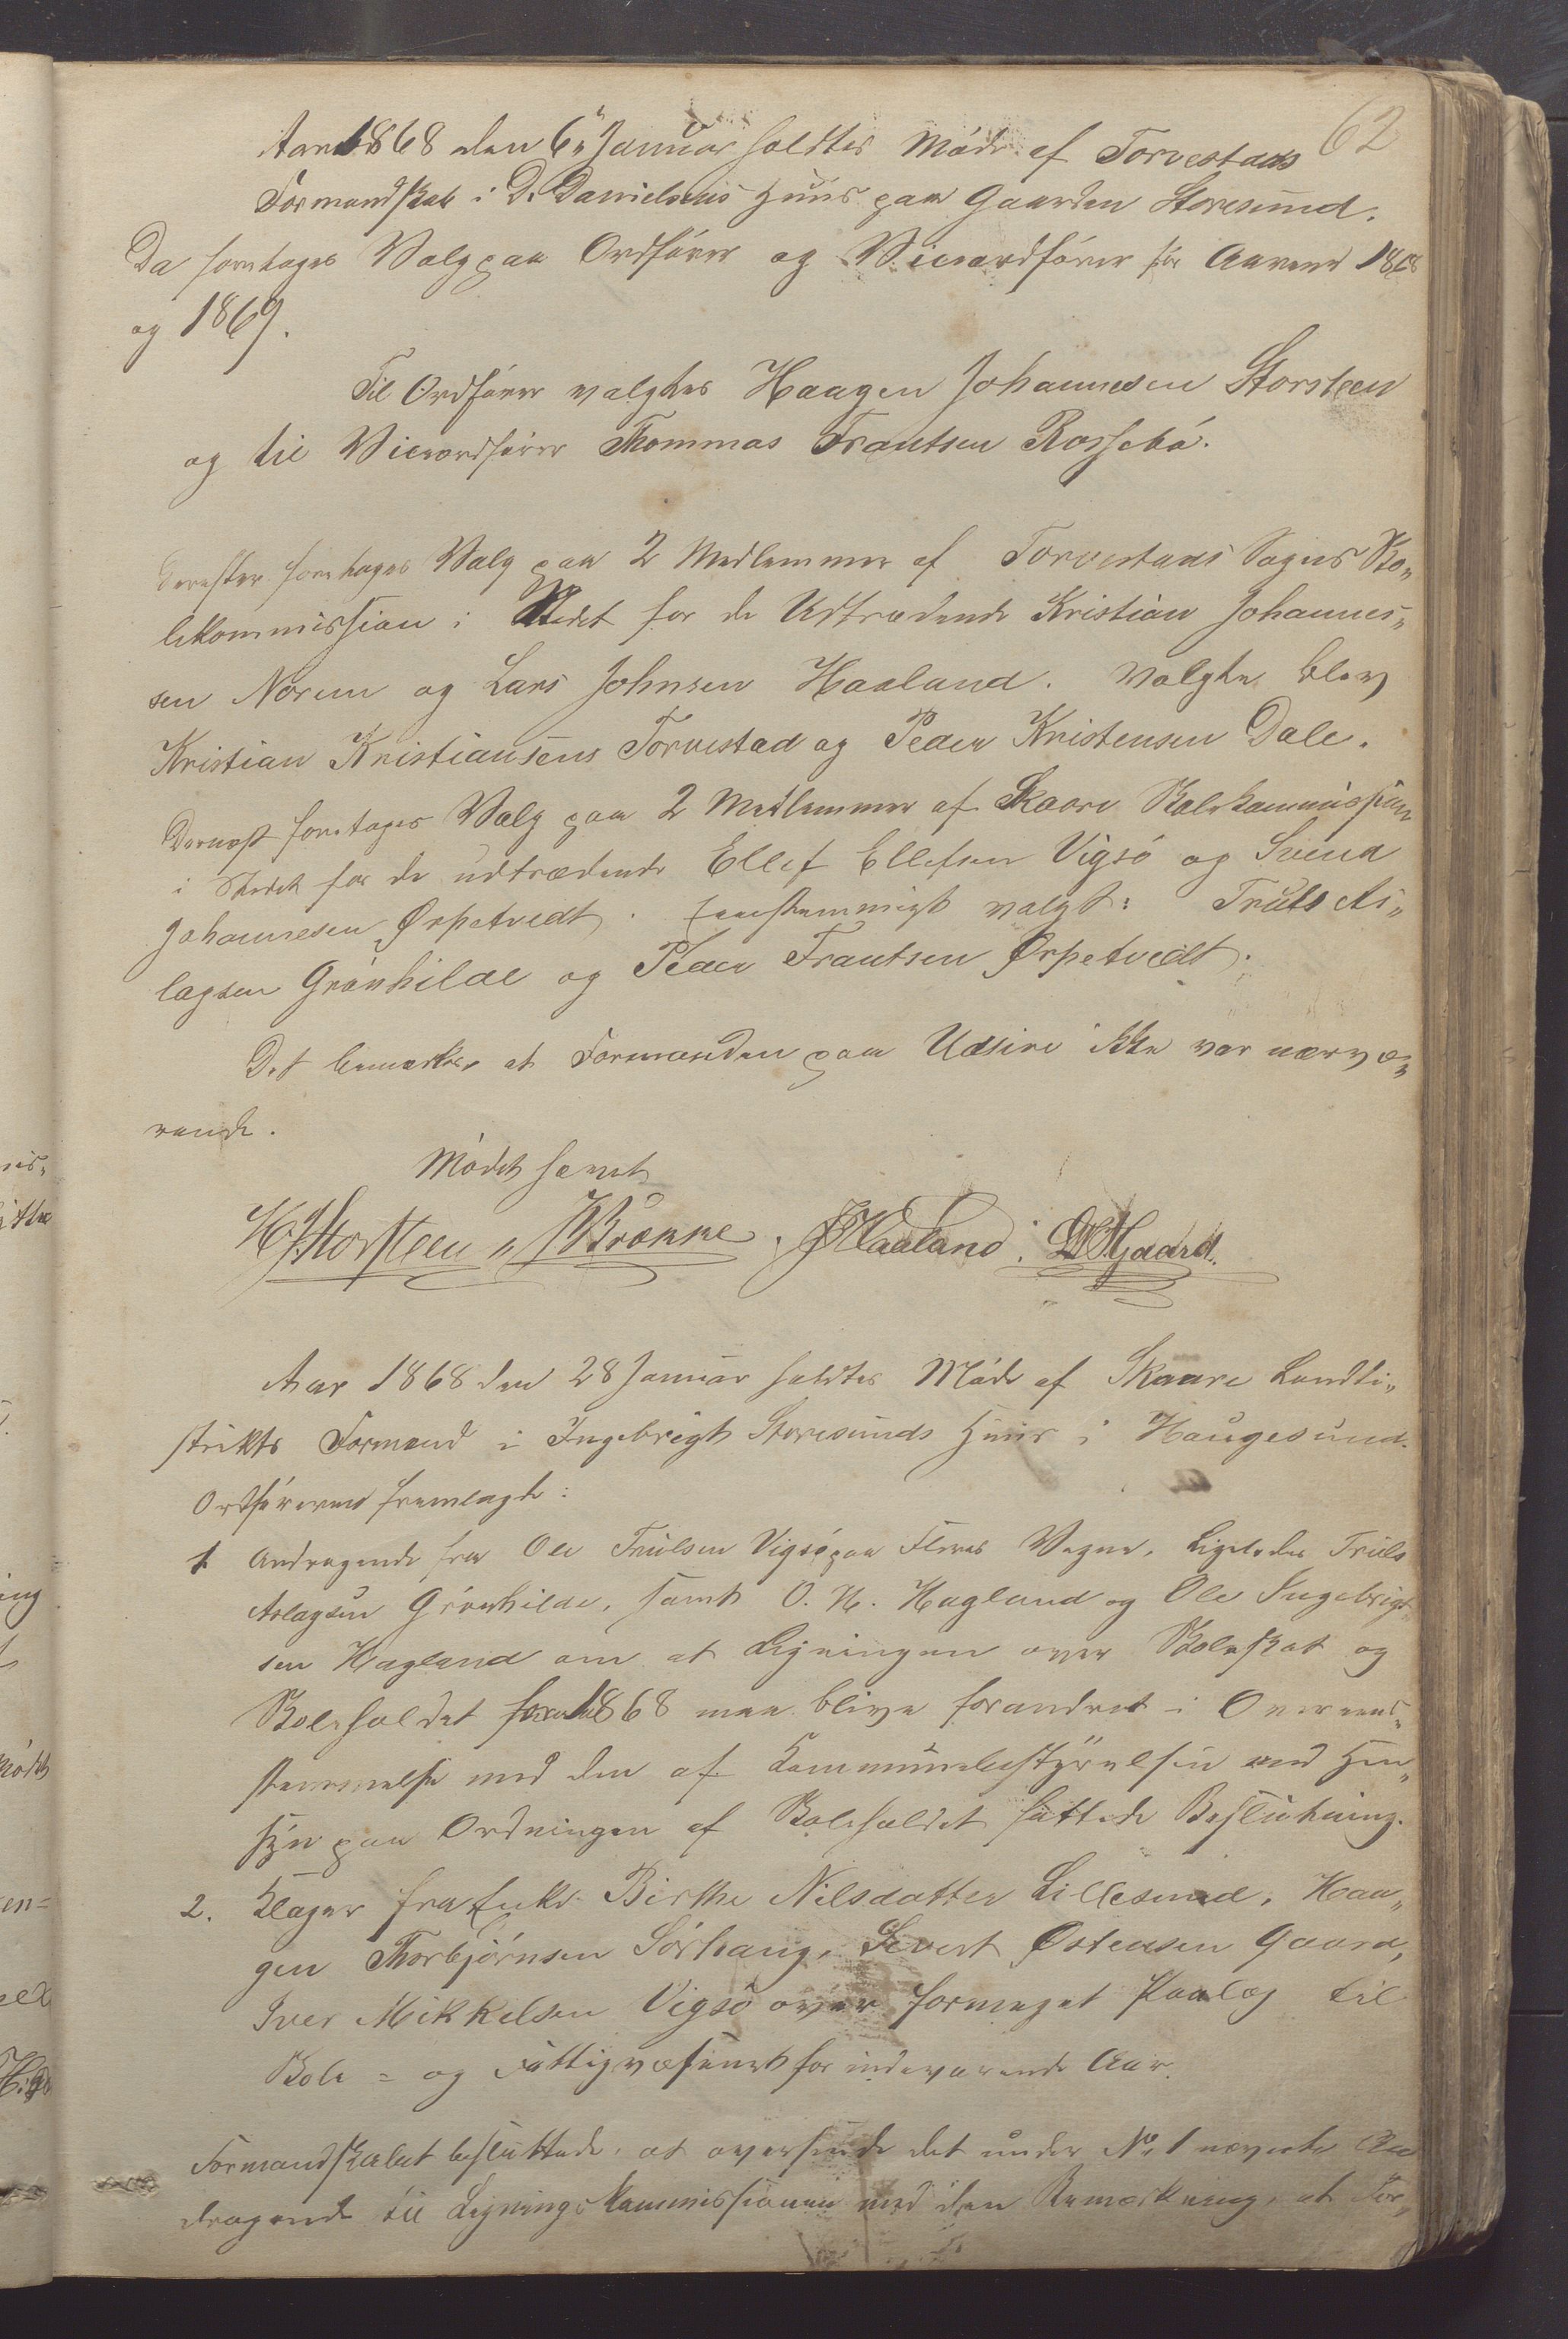 62
Aar 1868 den 6te Januar holdtes Møde af Torvestads
Formandskab i D. Danielsens Huus paa Gaarden Storesund.
Da foretages Valg paa Ordfører og Viceordfører for Aarene 1868
og 1869.
Til Ordfører valgtes Haagen Johannesen Storsteen
og til Viceordfører Thommas Frantsen Rossebø.
Derefter foretages Valg paa 2 Medlemmer af Torvestads Sogns Sko„
lekommission i Stedet for de Udtrædende Kristian Johannes„
sen Norem og Lars Johnsen Haaland. Valgte blev
Kristian Kristiansens Torvestad og Peder Kristensen Dale.
Dernæst foretages Valg paa 2 Medlemmer af Skaare Skolekommission
i Stedet for de udtrædende Ellef Ellefsen Vigsø og Svend
Johannesen Ørpetvedt. Eenstemmigt valgt: Truls As„
lagsen Grønhilde og Peder Frantsen Ørpetvedt.
Det bemærkes at Formanden paa Udsire ikke var nærvæ„
rende.
Mødet hævet
H. J. Storsteen „ J Brænne. J Haaland. L H Gaard.
Aar 1868 den 28 Januar holdtes Møde af Skaare Landdi„
strikts Formænd i Ingebrigt Storesunds Huus i Haugesund.
Ordføreren fremlagte:
1 Andragende fra Ole Trulsen Vigsø paa Fleres Vegne, Ligeledes Truls
Aslagsen Grønhilde, samt O. N. Hagland og Ole Ingebrigt„
sen Hagland om at Ligningen over Skoleskat og
Skoleholdet for 1868 maa blive forandret i Overeens„
stemmelse med den af Kommunebestyrelsen med Hen„
syn paa Ordningen af Skoleholdet fattede Beslutning.
2. Klager fra Enke Birthe Nilsdatter Lillesund, Haa„
gen Thorbjørnsen Sørhaug, Severt Østensen Gaard,
Iver Mikkelsen Vigsø over formeget Paalæg til
Skole= og Fattigvæsenet for indeværende Aar.
Formandskabet besluttede, at oversende det under No 1 nævnte An
dragende til Ligningskommissionen med den Bemærkning, at For„